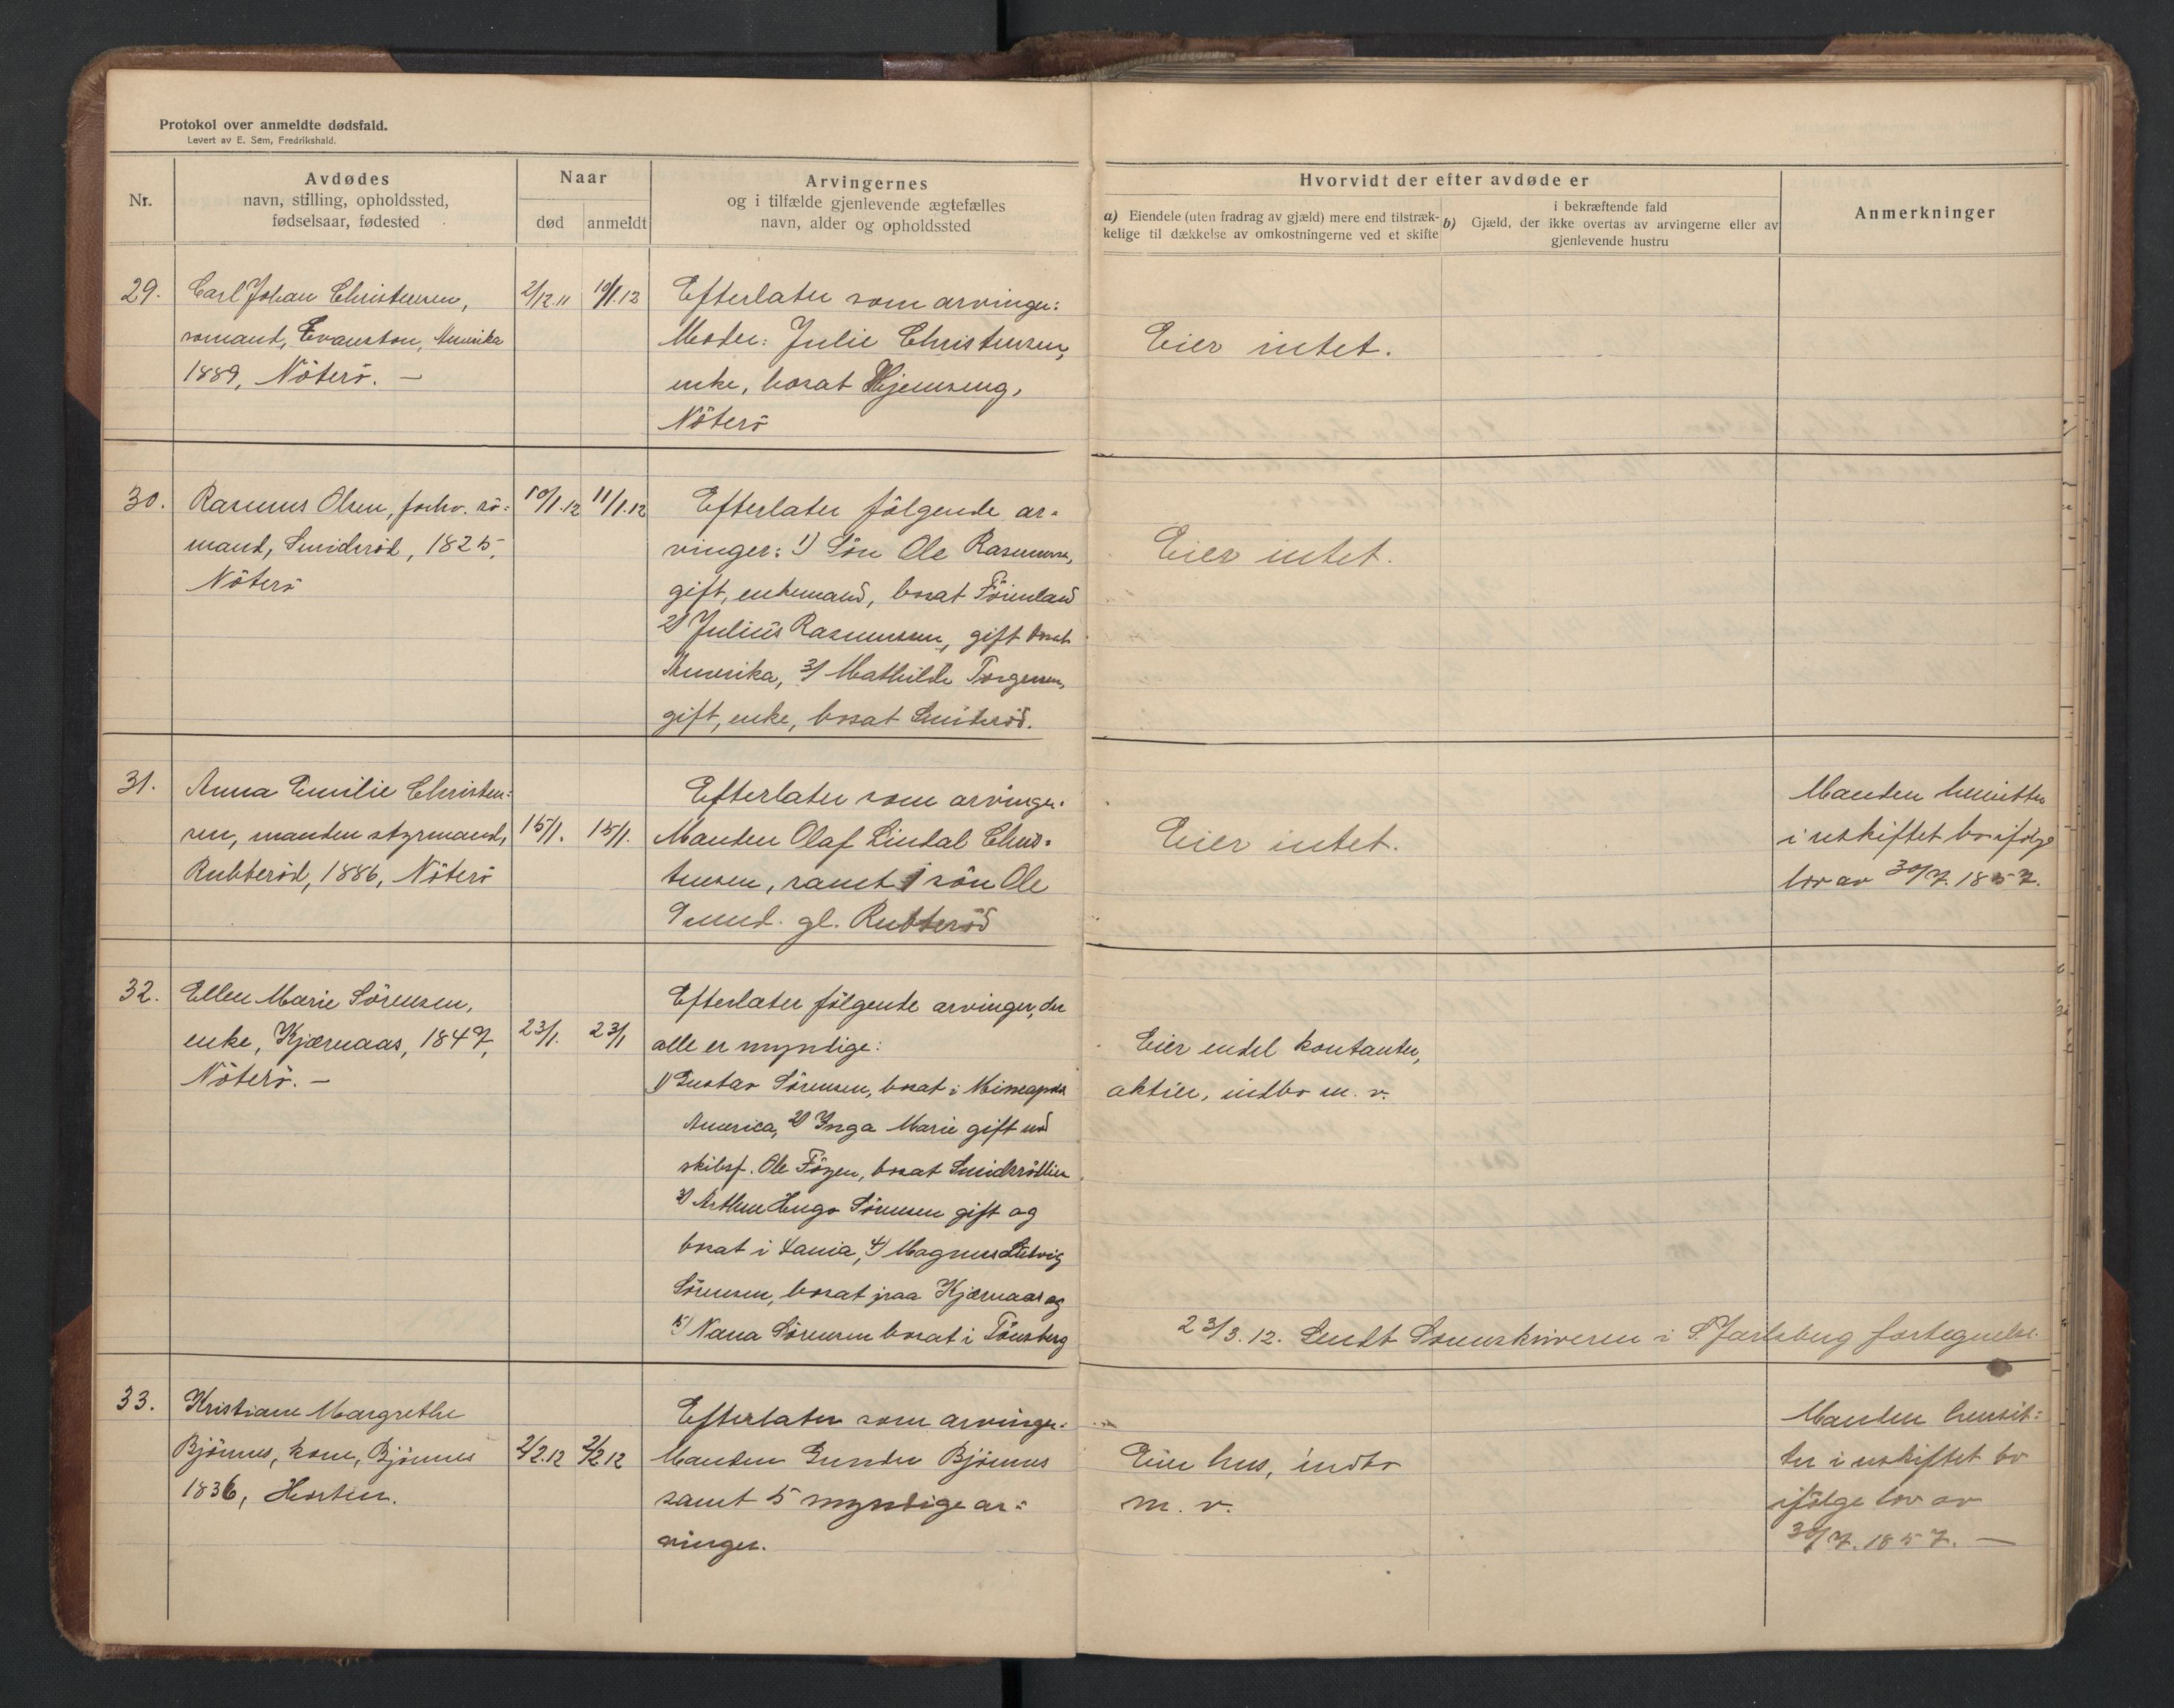 Protokol over anmeldte dødsfald.
Levert av E. Sem, Fredrikshald.
Nr.
Avdødes
navn, stilling, opholdssted,
fødselsaar, fødested
Naar
død
anmeldt
Arvingernes
og i tilfælde gjenlevende ægtefælles
navn, alder og opholdssted
Hvorvidt der efter avdøde er
a) Eiendele (uten fradrag av gjæld) mere end tilstræk-
kelige til dækkelse av omkostningerne ved et skifte
i bekræftende fald
b) Gjæld, der ikke overtas av arvingerne eller av
gjenlevende hustru
Anmerkninger
29.
Carl Johan Christensen,
sömand, Evanston, Amerika
1889, Nöterö. —
2/12.11
10/1.12
Efterlater som arvinger:
Moder: Julie Christensen,
enke, bosat Hjemseng,
Nöterö
Eier intet.
30.
Rasmus Olsen, forhv. sö-
mand, Smideröd, 1825,
Nöterö
10/1.12
11/1.12
Efterlater fölgende ar-
vinger: 1) Sön Ole Rasmussen,
gift, enkemand, bosat Föienland
2) Julius Rasmussen, gift bosat
Amerika, 3) Mathilde Torgersen,
gift, enke, bosat Smideröd.
Eier intet.
31.
Anna Emilie Christen-
sen, manden styrmand,
Rubberöd, 1886, Nöterö
15/1.
15/1.
Efterlater som arvinger.
Manden Olaf Lindal Chris-
tensen, samt 1 sön Ole
9 mnd. gl. Rubberöd
Eier intet.
Manden hensitter
i uskiftet bo ifölge
lov av 30/7. 1857.
32.
Ellen Marie Sörensen,
enke, Kjærnaas, 1847,
Nöterö. —
23/1.
23/1
Efterlater fölgende arvinger, der
alle er myndige:
1) Gustav Sörensen, bosat i Mineapolis
America, 2) Inga Marie gift med
skibsf. Ole Föyen, bosat Smidsrödlien
3) Arthur Hugo Sörensen gift og
bosat i 4) Magnus Ludvig
Sörensen, bosat paa Kjærnaas og
5) Nana Sörensen bosat i Tönsberg
Eier endel kontanter,
aktier, indbo m. v.
23/3.12. Sendt Sorenskriveren i S. Jarlsberg fortegnelse.
33.
Kristiane Margrethe
Björnnes, kone, Björnnes
1836, Horten.
2/2.12
2/2 12
Efterlater som arvinger.
Manden Gunder Björnnes
samt 5 myndige ar-
vinger.
Eier hus, indbo
m. v.
Manden hensit-
ter i uskiftet bo
ifölge lov av
30/7. 1857. —